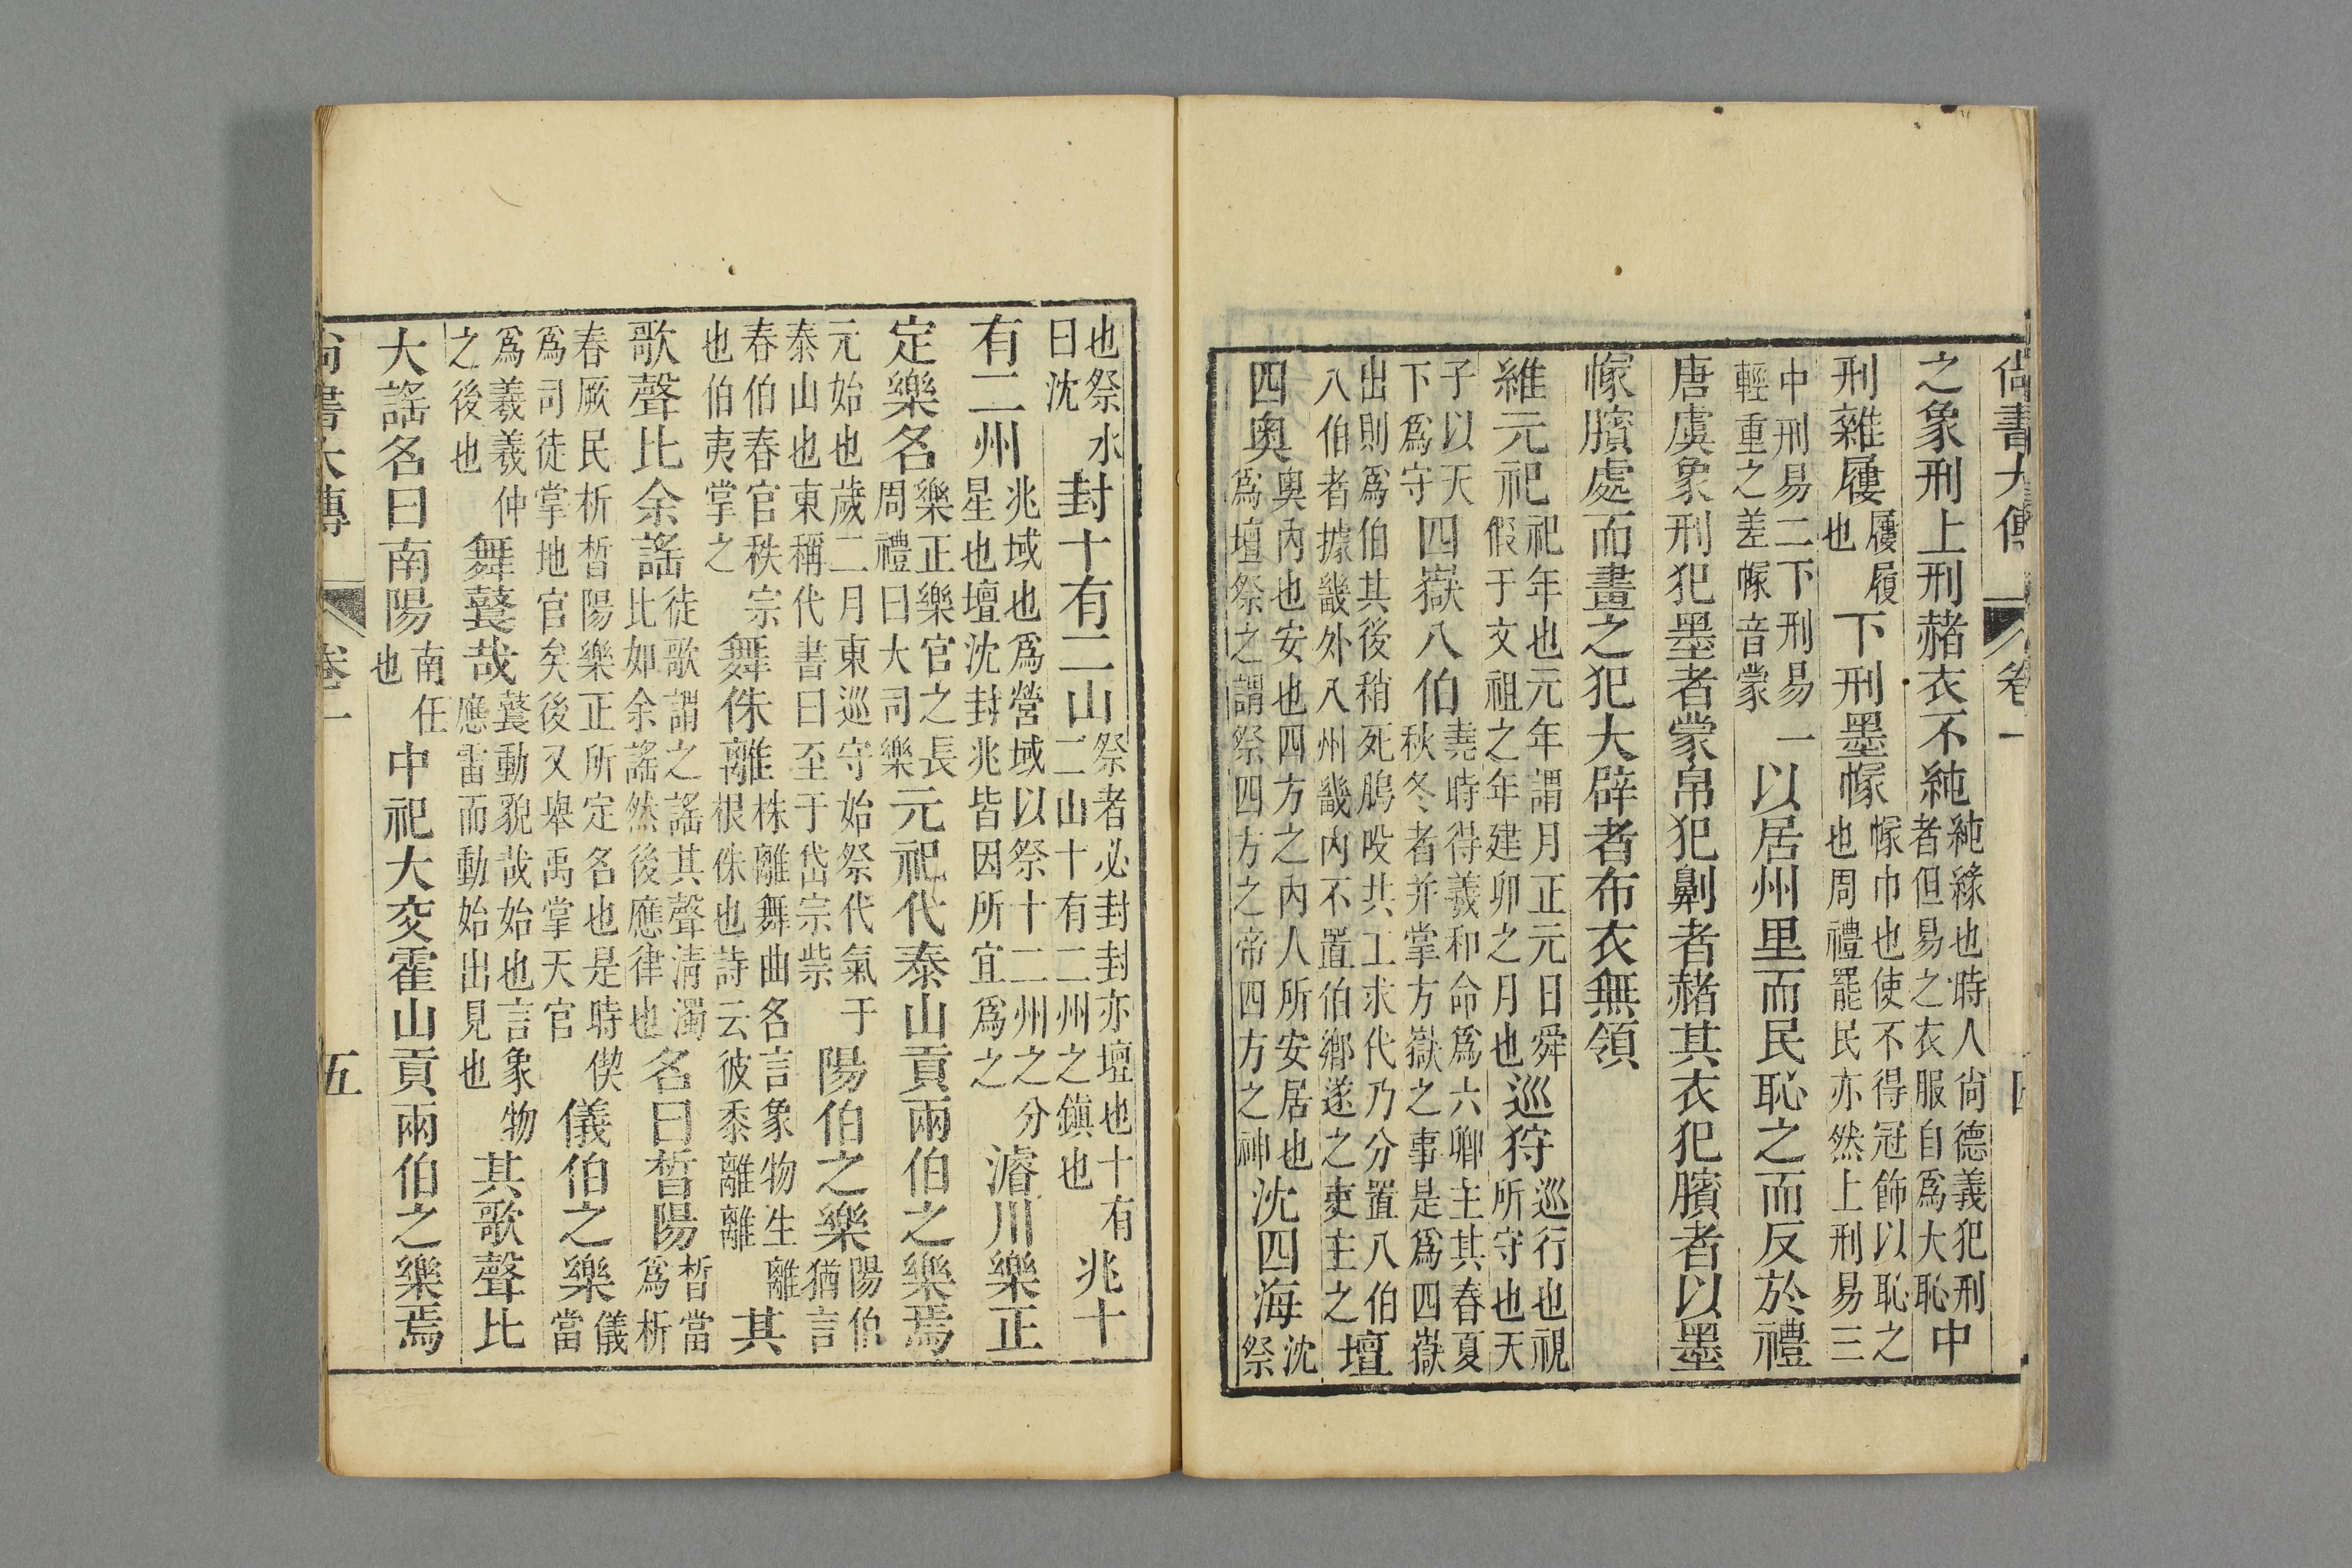 尚書大傳 卷一
之象刑上刑赭衣不純純緣也時人尚德義犯刑者但易之衣服自爲大恥中
刑雜屨屨履也下刑墨幪幪巾也使不得冠飾以恥之也周禮罷民亦然上刑易三
中刑易二下刑易一輕重之差幪音蒙以居州里而民恥之而反於禮
唐虞象刑犯墨者蒙帛犯劓者赭其衣犯臏者以墨
幪臏處而畫之犯大辟者布衣無領
維元祀祀年也元年謂月正元日舜假于文祖之年建卯之月也巡狩巡行也視所守也天
子以天下爲守四嶽八伯堯時得羲和命爲六卿主其春夏秋冬者并掌方嶽之事是爲四嶽
出則爲伯其後稍死鴅吺共工求代乃分置八伯八伯者據畿外八州畿內不置伯鄉遂之吏主之壇
四奧奧內也安也四方之內人所安居也爲壇祭之謂祭四方之帝四方之神沈四海沈祭
也祭水曰沈封十有二山祭者必封封亦壇也十有二山十有二州之鎭也兆十
有二州兆域也爲營域以祭十二州之分星也壇沈封兆皆因所宜爲之濬川樂正
定樂名樂正樂官之長周禮曰大司樂元祀代泰山貢兩伯之樂焉
元始也歲二月東巡守始祭代氣于泰山也東稱代書曰至于岱宗柴陽伯之樂陽伯猶言
春伯春官秩宗也伯夷掌之舞侏離株離舞曲名言象物生離根侏也詩云彼黍離離其
歌聲比余謠徒歌謂之謠其聲淸濁比如余謠然後應律也名曰晳陽晳當爲析
春厥民析晳陽樂正所定名也是時偰爲司徒掌地官矣後又舉禹掌天官儀伯之樂儀當
爲羲羲仲之後也舞鼚哉鼚動貌哉始也言象物應雷而動始出見也其歌聲比
大謠名曰南陽南任也中祀大交霍山貢兩伯之樂焉
尚書大傳 卷一 五